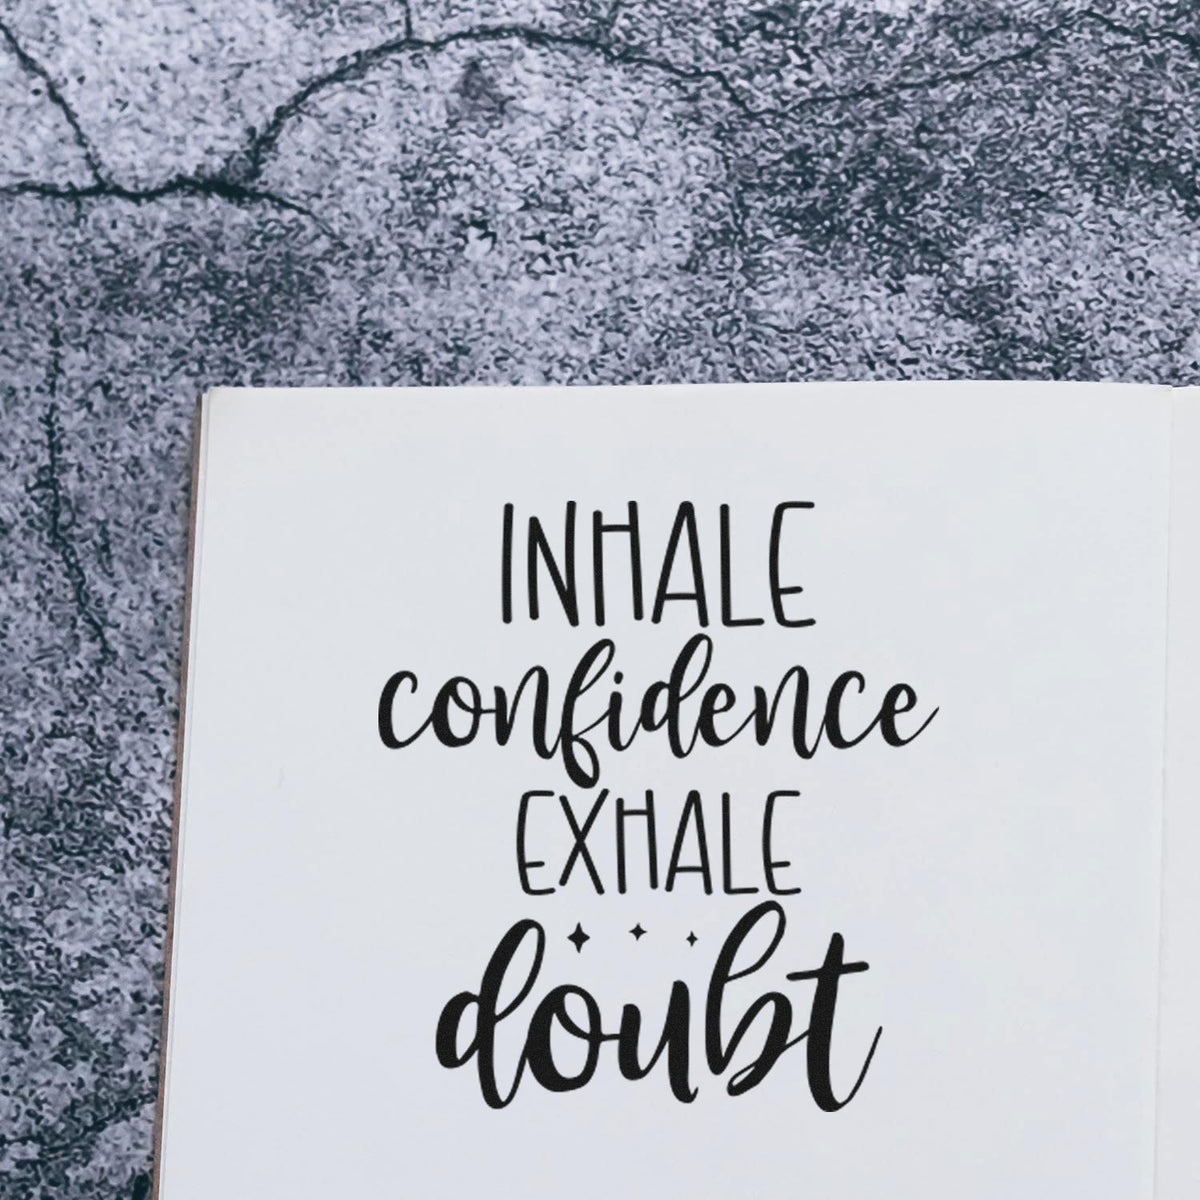 INHALE
confidence
EXHALE
doubt